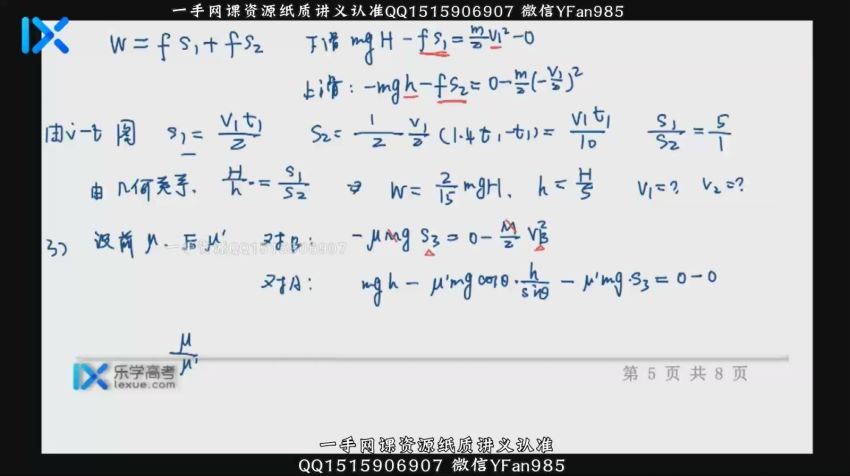 一手网课资源纸质讲义认准QQ1515906907 微信YFan985
W = f s₁ + f s₂ 下滑 mgH - f s₁ = m/2 v₁² - 0
上滑: -mgh - f s₂ = 0 - m/2 (-v₁/2)²
由v-t 图 s₁ = v₁t₁/2 s₂ = 1/2 v₁/2 (1.4t₁ - t₁) = v₁t₁/10 s₁/s₂ = 5/1
由几何关系. H/h = s₁/s₂ ⇒ W = 2/15 mgH. h = H/5 v₁=? v₂=?
3) 设前 μ. 后 μ' 对B: -μmg s₃ = 0 - M/2 v_B²
一手资源QQ1515906907
对A: mgh - μ'mg cosθ · h/sinθ - μ'mg · s₃ = 0 - 0
μ/μ'
乐学高考
lexue.com
第 5 页 共 8 页
一手网课资源纸质讲义认准
QQ1515906907 微信YFan985